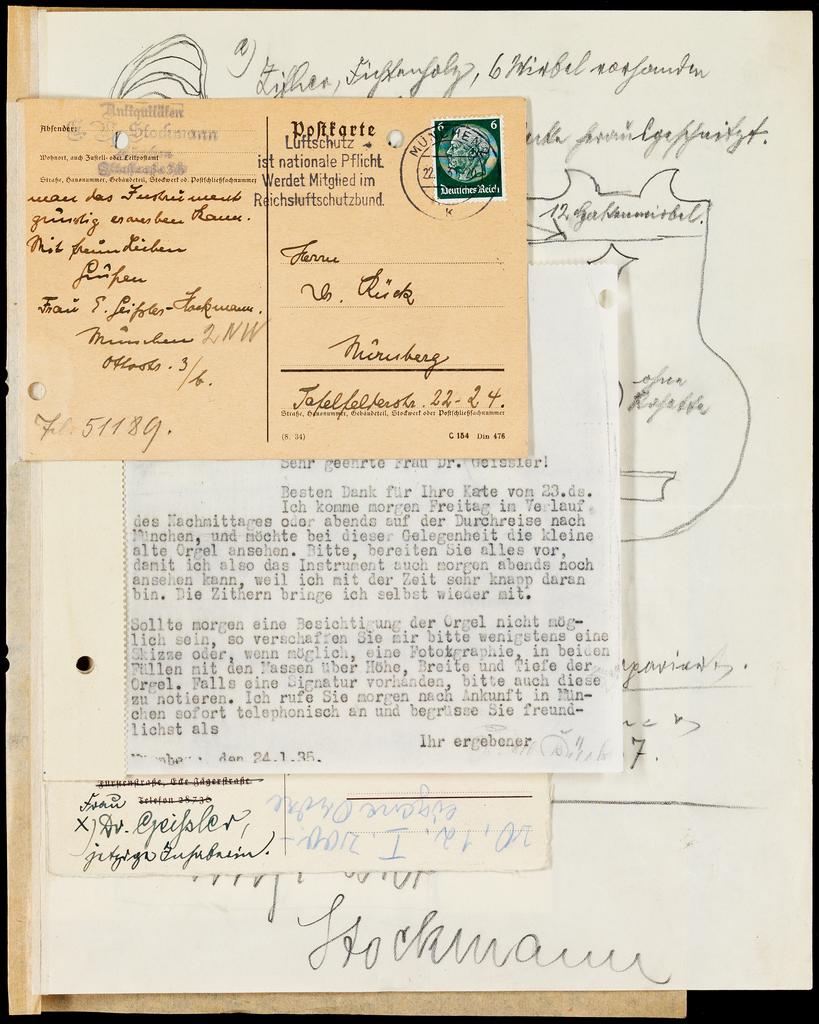 a)
Zither, Fichtenholz, 6 Wirbel vorhanden
herausgeschnitzt.
12 Harfenwirbel.
ohne
Rosette
Antiquitäten
Stockmann
Absender:
Wohnort, auch Zustell- oder Leitpostamt
Straße, Hausnummer, Gebäudeteil, Stockwerk od. Postschließfachnummer
man das Instrument
günstig erwerben kann.
Mit freundlichen
Grüßen
Frau E. Geißler-Stockmann.
München 2 NW
Ottostr. 3/b.
Tel. 51189.
Postkarte
Luftschutz
ist nationale Pflicht
Werdet Mitglied im
Reichsluftschutzbund.
MÜNCHEN
22.
K
6 6
Deutsches Reich
Herrn
Dr. Rück
Nürnberg
Tafelfelderstr. 22-24.
Straße, Hausnummer, Gebäudeteil, Stockwerk oder Postschließfachnummer
(8. 34)
C 154 Din 476
Sehr geehrte Frau Dr. Geissler!
Besten Dank für Ihre Kate vom 23.ds.
Ich komme morgen Freitag im Verlauf
des Nachmittages oder abends auf der Durchreise nach
München, und möchte bei dieser Gelegenheit die kleine
alte Orgel ansehen. Bitte, bereiten Sie alles vor,
damit ich also das Instrument auch morgen abends noch
ansehen kann, weil ich mit der Zeit sehr knapp daran
bin. Die Zithern bringe ich selbst wieder mit.
Sollte morgen eine Besichtigung der Orgel nicht mög-
lich sein, so verschaffen Sie mir bitte wenigstens eine
Skizze oder, wenn möglich, eine Fotokgraphie, in beiden
Füllen mit den Massen über Höhe, Breite und Tiefe der
Orgel. Falls eine Signatur vorhanden, bitte auch diese
zu notieren. Ich rufe Sie morgen nach Ankunft in Mün-
chen sofort telephonisch an und begrüsse Sie freund-
lichst als
Ihr ergebener
den 24.1.35.
7.
Fürstenstraße, Ecke Jägerstraße
Telefon 28736
Frau
x) Dr. Geißler,
jetzige Inhaberin.
Stockmann